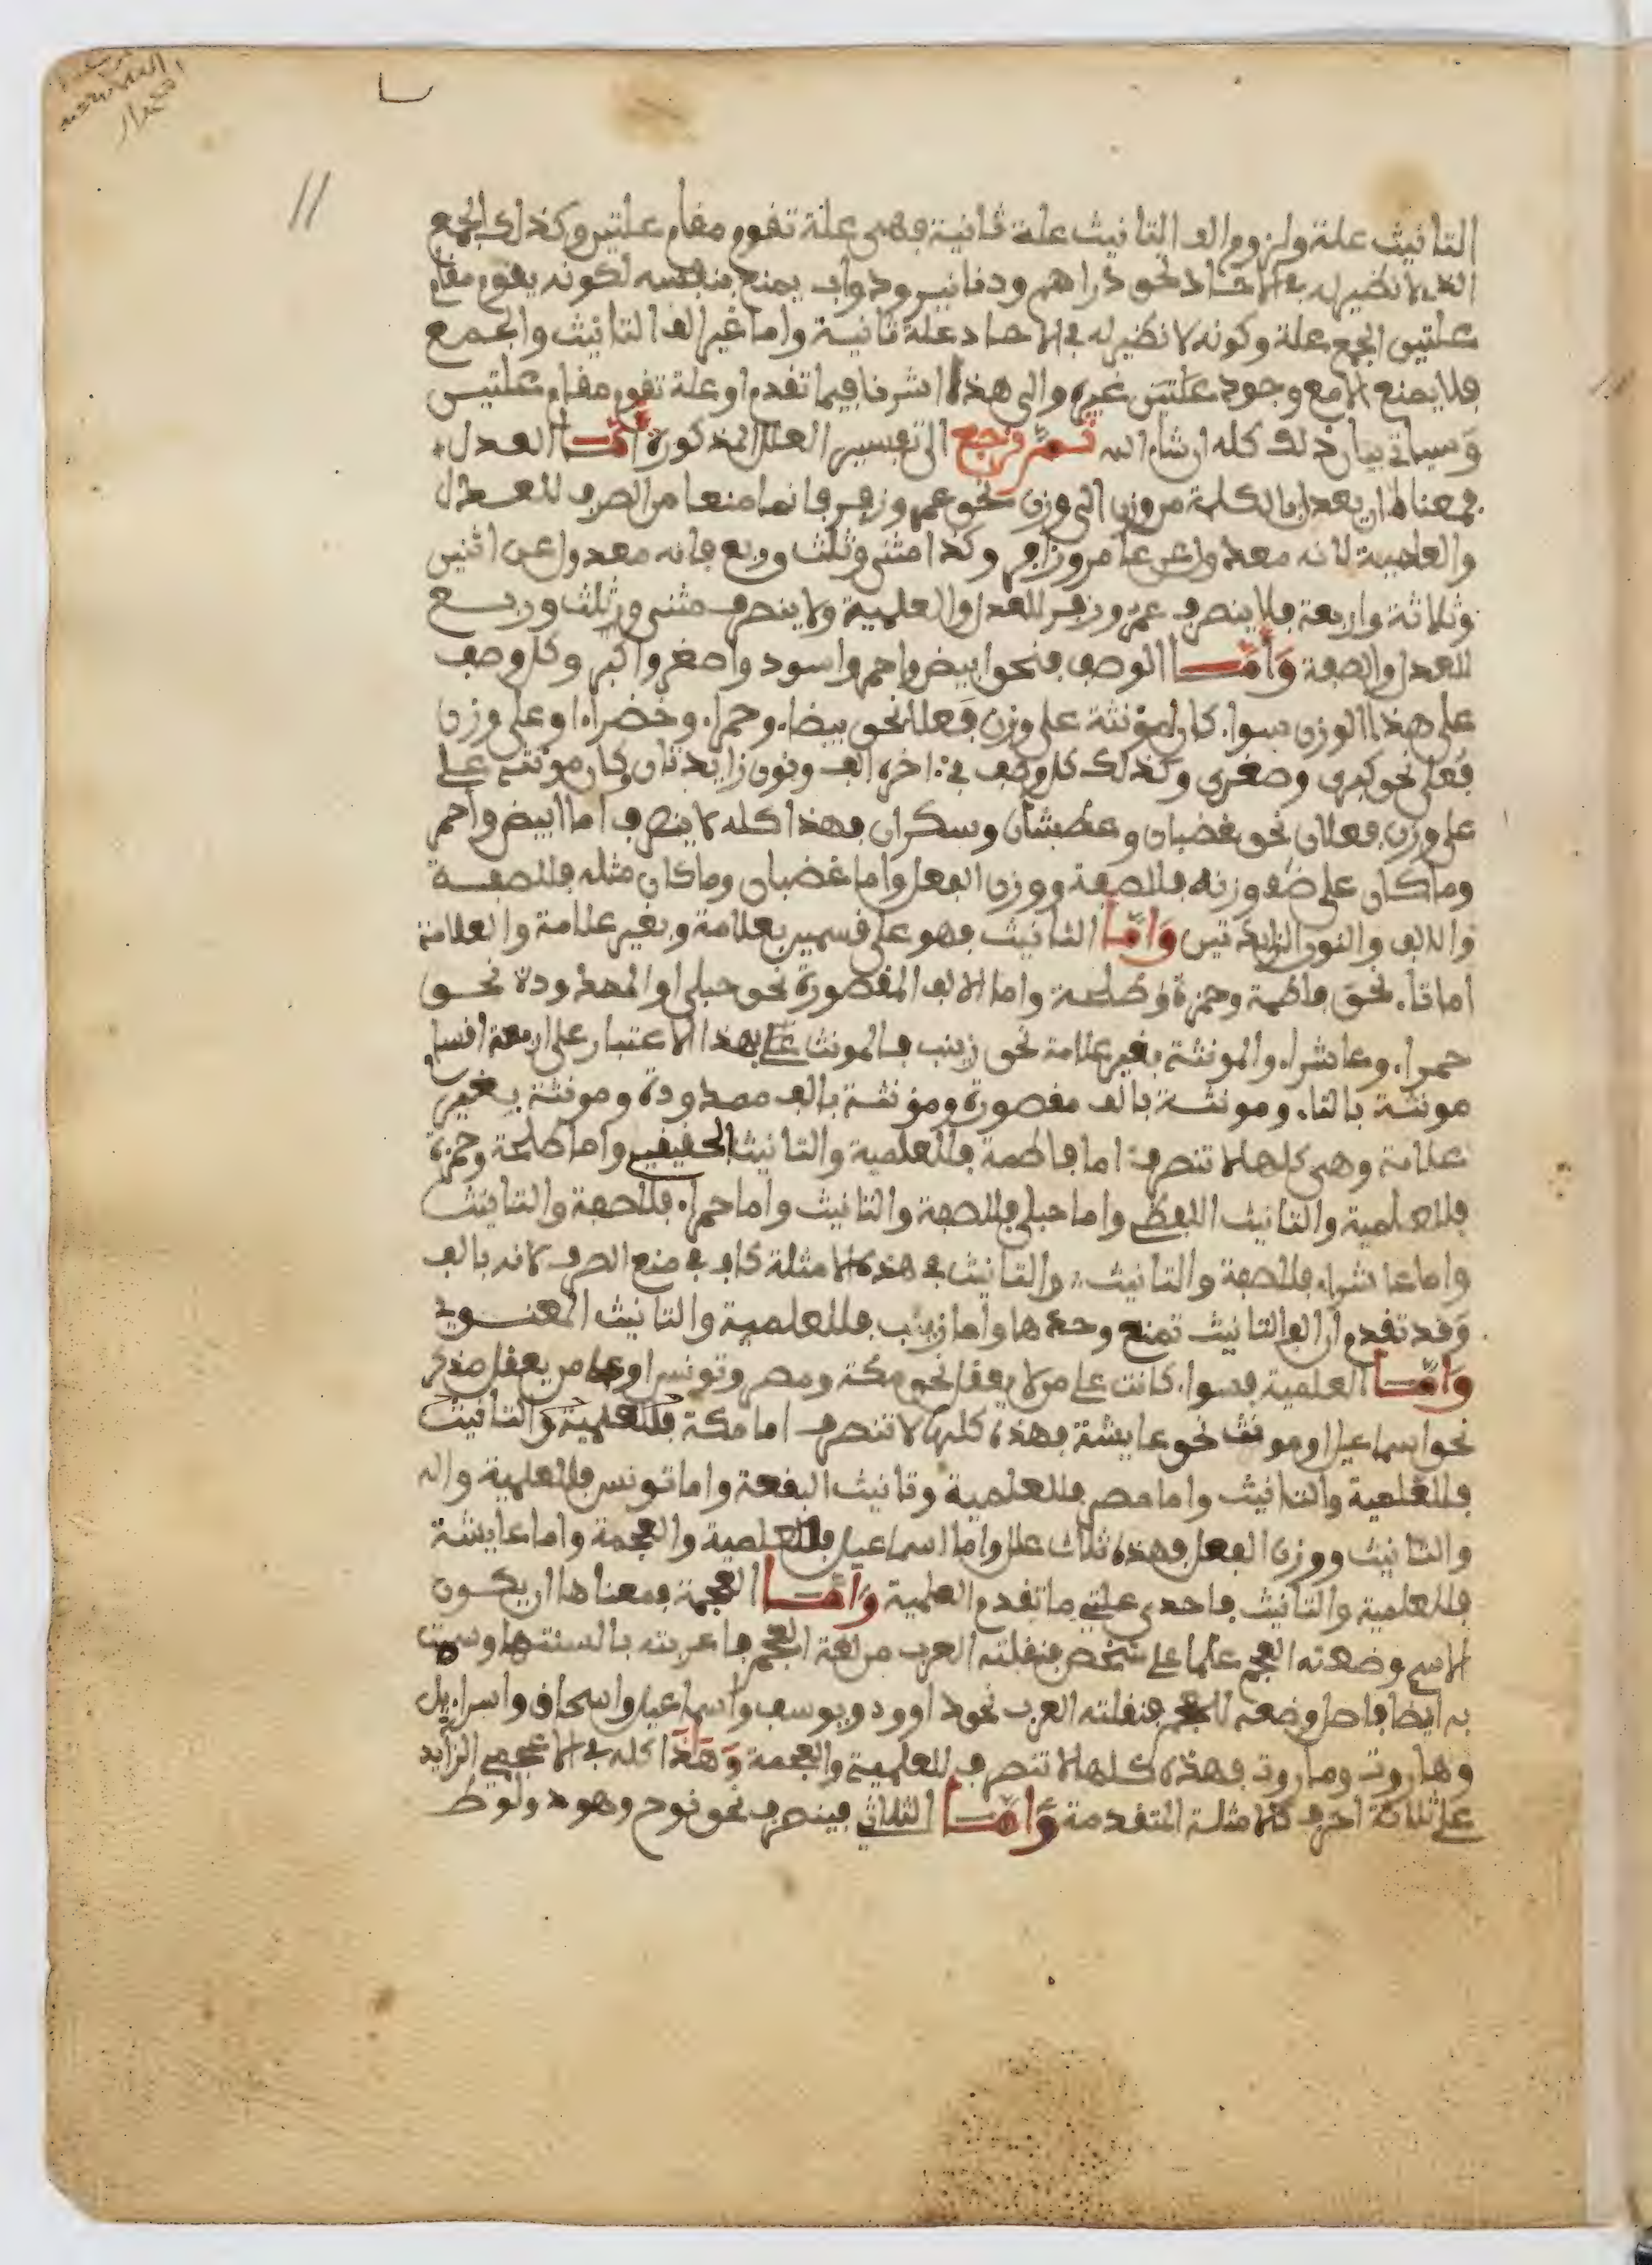 11
التانيث علة ولزوم الف التانيث علة ثانية فهي علة تقوم مقام علتين وكذلك الجمع
الذي لا نظير له في الاحاد نحو دراهم ودنانير ودواب يمنع بنفسه لكونه يقوم مقام
علتين الجمع علة وكونه لا نظير له في الاحاد علة ثانية واما غير الف التانيث والجمع
فلا يمنع الا مع وجود علتين غيره والى هذا اشرنا فيما تقدم او علة تقوم مقام علتين
وسياتي بيان ذلك كله ان شاء الله ثم نرجع الى تفسير العلل المذكورة اما العدل
فمعناه ان يعدل بالكلمة من وزن الى وزن نحو عمر وزفر فانما منعا من الصرف للعدل
والعلمية لانه معدول عن عامر وزافر وكذا مثنى وثلث وربع فانه معدول عن اثنين
وثلاثة واربعة فلا ينصرف عمر وزفر للعدل والعلمية ولا ينصرف مثنى وثلث وربع
للعدل والصفة واما الوصف فنحو ابيض واحمر واسود واصغر واكبر وكل وصف
على هذا الوزن سواء كان مؤنثة على وزن فعلا نحو بيضاء وحمراء وخضراء او على وزن
فعلى نحو كبرى وصغرى وكذلك كل وصف في ءاخره الف ونون زايدتان وكان مؤنثه على
على وزن فعلان نحو غضبان وعطشان وسكران فهذا كله لا ينصرف اما ابيض واحمر
وما كان على وزنه فللصفة ووزن الفعل واما غضبان وما كان مثله فللصفة
والالف والنون الزايدتين واما التانيث فهو على قسمين بعلامة وبغير علامة والعلامة
اما تاء نحو فاطمة وحمزة وطلحة واما الالف المقصورة نحو حبلى او الممدودة نحو
حمراء وعاشراء والمونثة بغير علامة نحو زينب فالمونث على هذا الاعتبار على اربعة اقسام
مونثة بالتاء ومونثة بالف مقصورة ومؤنثة بالف ممدودة ومونثة بغير
علامة وهي كلها لا تنصرف اما فاطمة فللعلمية والتانيث الحقيقي واما طلحة وحمزة
فللعلمية والتانيث اللفظي واما حبلى فللصفة والتانيث واما حمراء فللصفة والتانيث
واما عاشراء فللصفة والتانيث والتانيث في هذه الامثلة كاف في منع الصرف لانه بالف
وقد تقدم ان الف التانيث تمنع وحدها واما زينب فللعلمية والتانيث المعنوي
واما العلمية فسواء كانت علم من لا يعقل نحو مكة ومصر وتونس او علم من يعقل مذكر
نحو اسماعيل او مونث نحو عايشة فهذه كلها لا تنصرف اما مكة فللعلمية والتانيث
فللعلمية والتانيث واما مصر فللعلمية وتانيث البقعة واما تونس فللعلمية
والتانيث ووزن الفعل فهذه ثلاث علل واما اسماعيل فللعلمية والعجمة واما عايشة
فللعلمية والتانيث فاحدى علتي ما تقدم العلمية واما العجمة فمعناها ان يكون
الاسم وضعته العجم علما على شخص فنقلته العرب من لغة العجم فاعربته بالسنتها وسمت
به ايضا فاصل وضعه للعجم فنقلته العرب نحو داوود ويوسف واسماعيل واسحاق واسراءيل
وهاروت وماروت فهذه كلها لا تنصرف للعلمية والعجمة وهذا كله في الاعجمي الزايد
على ثلاثة احرف كالامثلة المتقدمة واما الثلاثي فينصرف نحو نوح وهود ولوط